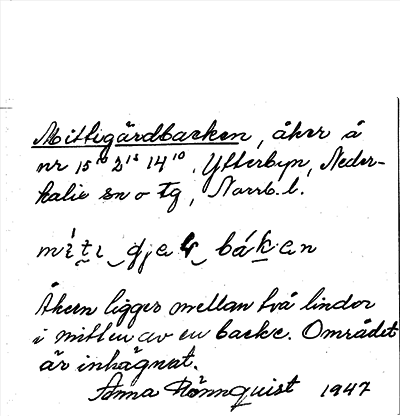 Mittigårdbacken, åker å
nr 15¹⁰ 2¹⁵ 14¹⁰, Ytterbyn, Neder-
kalix sn o tg, Norrb. l.
Åkern ligger mellan två lindor
i mitten av en backe. Området
är inhägnat.
Anna Rönnquist 1947